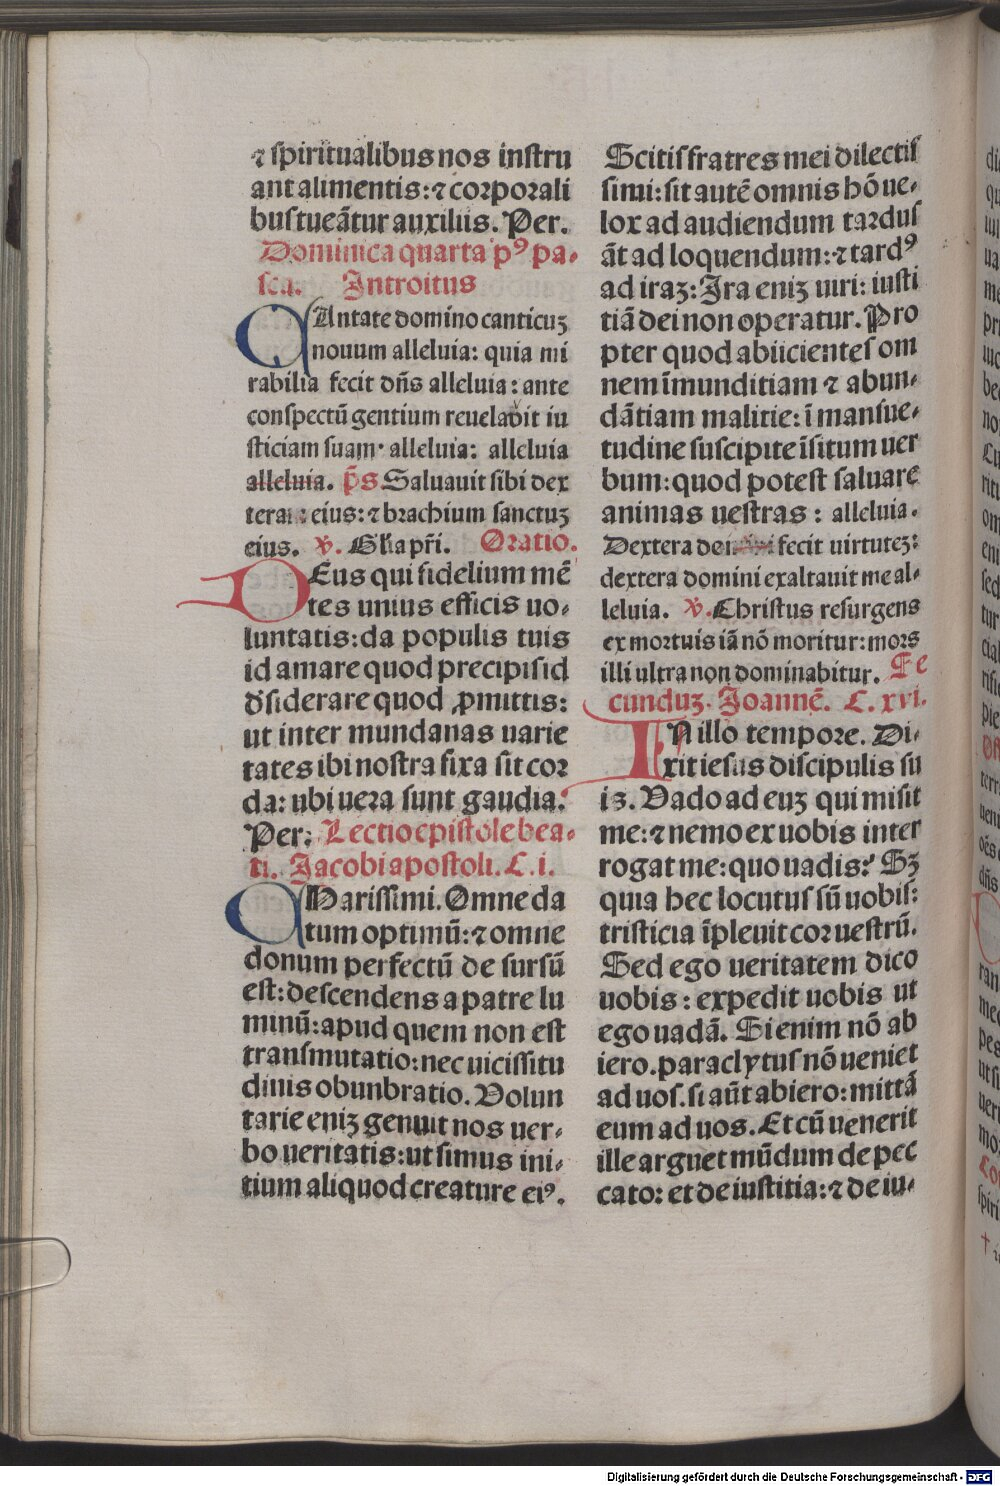 ⁊ spiritualibus nos instru
ant alimentis: ⁊ corporali
bus tueãtur auxiliis. Per.
Dominica quarta pꝰ pa-
sca. Introitus
CAntate domino canticuꝫ
nouum alleluia: quia mi
rabilia fecit dñs alleluia: ante
conspectũ gentium reuelauit iu
sticiam suam· alleluia: alleluia
alleluia. p̄s Saluauit sibi dex
tera eius: ⁊ brachium sanctuꝫ
eius. ℣. Glīa pr̄i. Oratio.
DEus qui fidelium mẽ
tes unius efficis uo-
luntatis: da populis tuis
id amare quod precipis id
d̄siderare quod ꝓmittis:
ut inter mundanas uarie
tates ibi nostra fixa sit cor
da: ubi uera sunt gaudia.
Per: Lectio epistole bea-
ti. Jacobi apostoli. C. i.
CHarissimi. Omne da
tum optimũ: ⁊ omne
donum perfectũ de sursũ
est: descendens a patre lu
minũ: apud quem non est
transmutatio: nec uicissitu
dinis obunbratio. Volun
tarie eniꝫ genuit nos uer-
bo ueritatis: ut simus ini-
tium aliquod creature eiꝰ.
Scitis fratres mei dilectis
simi: sit autẽ omnis hõ ue-
lox ad audiendum tardus
ãt ad loquendum: ⁊ tardꝰ
ad iraꝫ: Ira eniꝫ uiri: iusti
tiã dei non operatur. Pro
pter quod abiicientes om
nem ĩmunditiam ⁊ abun-
dãtiam malitie: ĩ mansue-
tudine suscipite ĩsitum uer
bum: quod potest saluare
animas uestras: alleluia.
Dextera dei fecit uirtuteꝫ:
dextera domini exaltauit me al-
leluia. ℣. Christus resurgens
ex mortuis iã nõ moritur: mors
illi ultra non dominabitur. Se
cunduꝫ. Joannẽ. C. xvi.
IN illo tempore. Di-
xit iesus discipulis su
is. Vado ad euꝫ qui misit
me: ⁊ nemo ex uobis inter
rogat me: quo uadis? Sꝫ
quia hec locutus sũ uobis:
tristicia ĩpleuit cor uestrũ.
Sed ego ueritatem dico
uobis: expedit uobis ut
ego uadã. Si enim nõ ab
iero. paraclytus nõ ueniet
ad uos. si aũt abiero: mittã
eum ad uos. Et cũ uenerit
ille arguet mũdum de pec
cato: et de iustitia: ⁊ de iu-
Digitalisierung gefördert durch die Deutsche Forschungsgemeinschaft - DFG